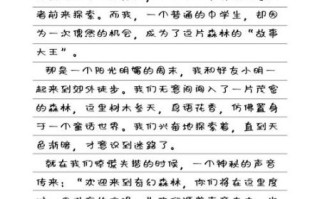 者前来探索。而我，一个普通的中学生，却因
为一次偶然的机会，成为了这片森林的“故事
大王”。
那是一个阳光明媚的周末，我和好友小明一
起来到郊外徒步。我们无意间闯入了一片茂密
的森林，这里树木参天，鸟语花香，仿佛置身
于一个童话世界。我们兴奋地探索着，直到天
色渐暗，才意识到迷路了。
就在我们惊慌失措的时候，一个神秘的声音
传来：“欢迎来到奇幻森林，你们将在这里度